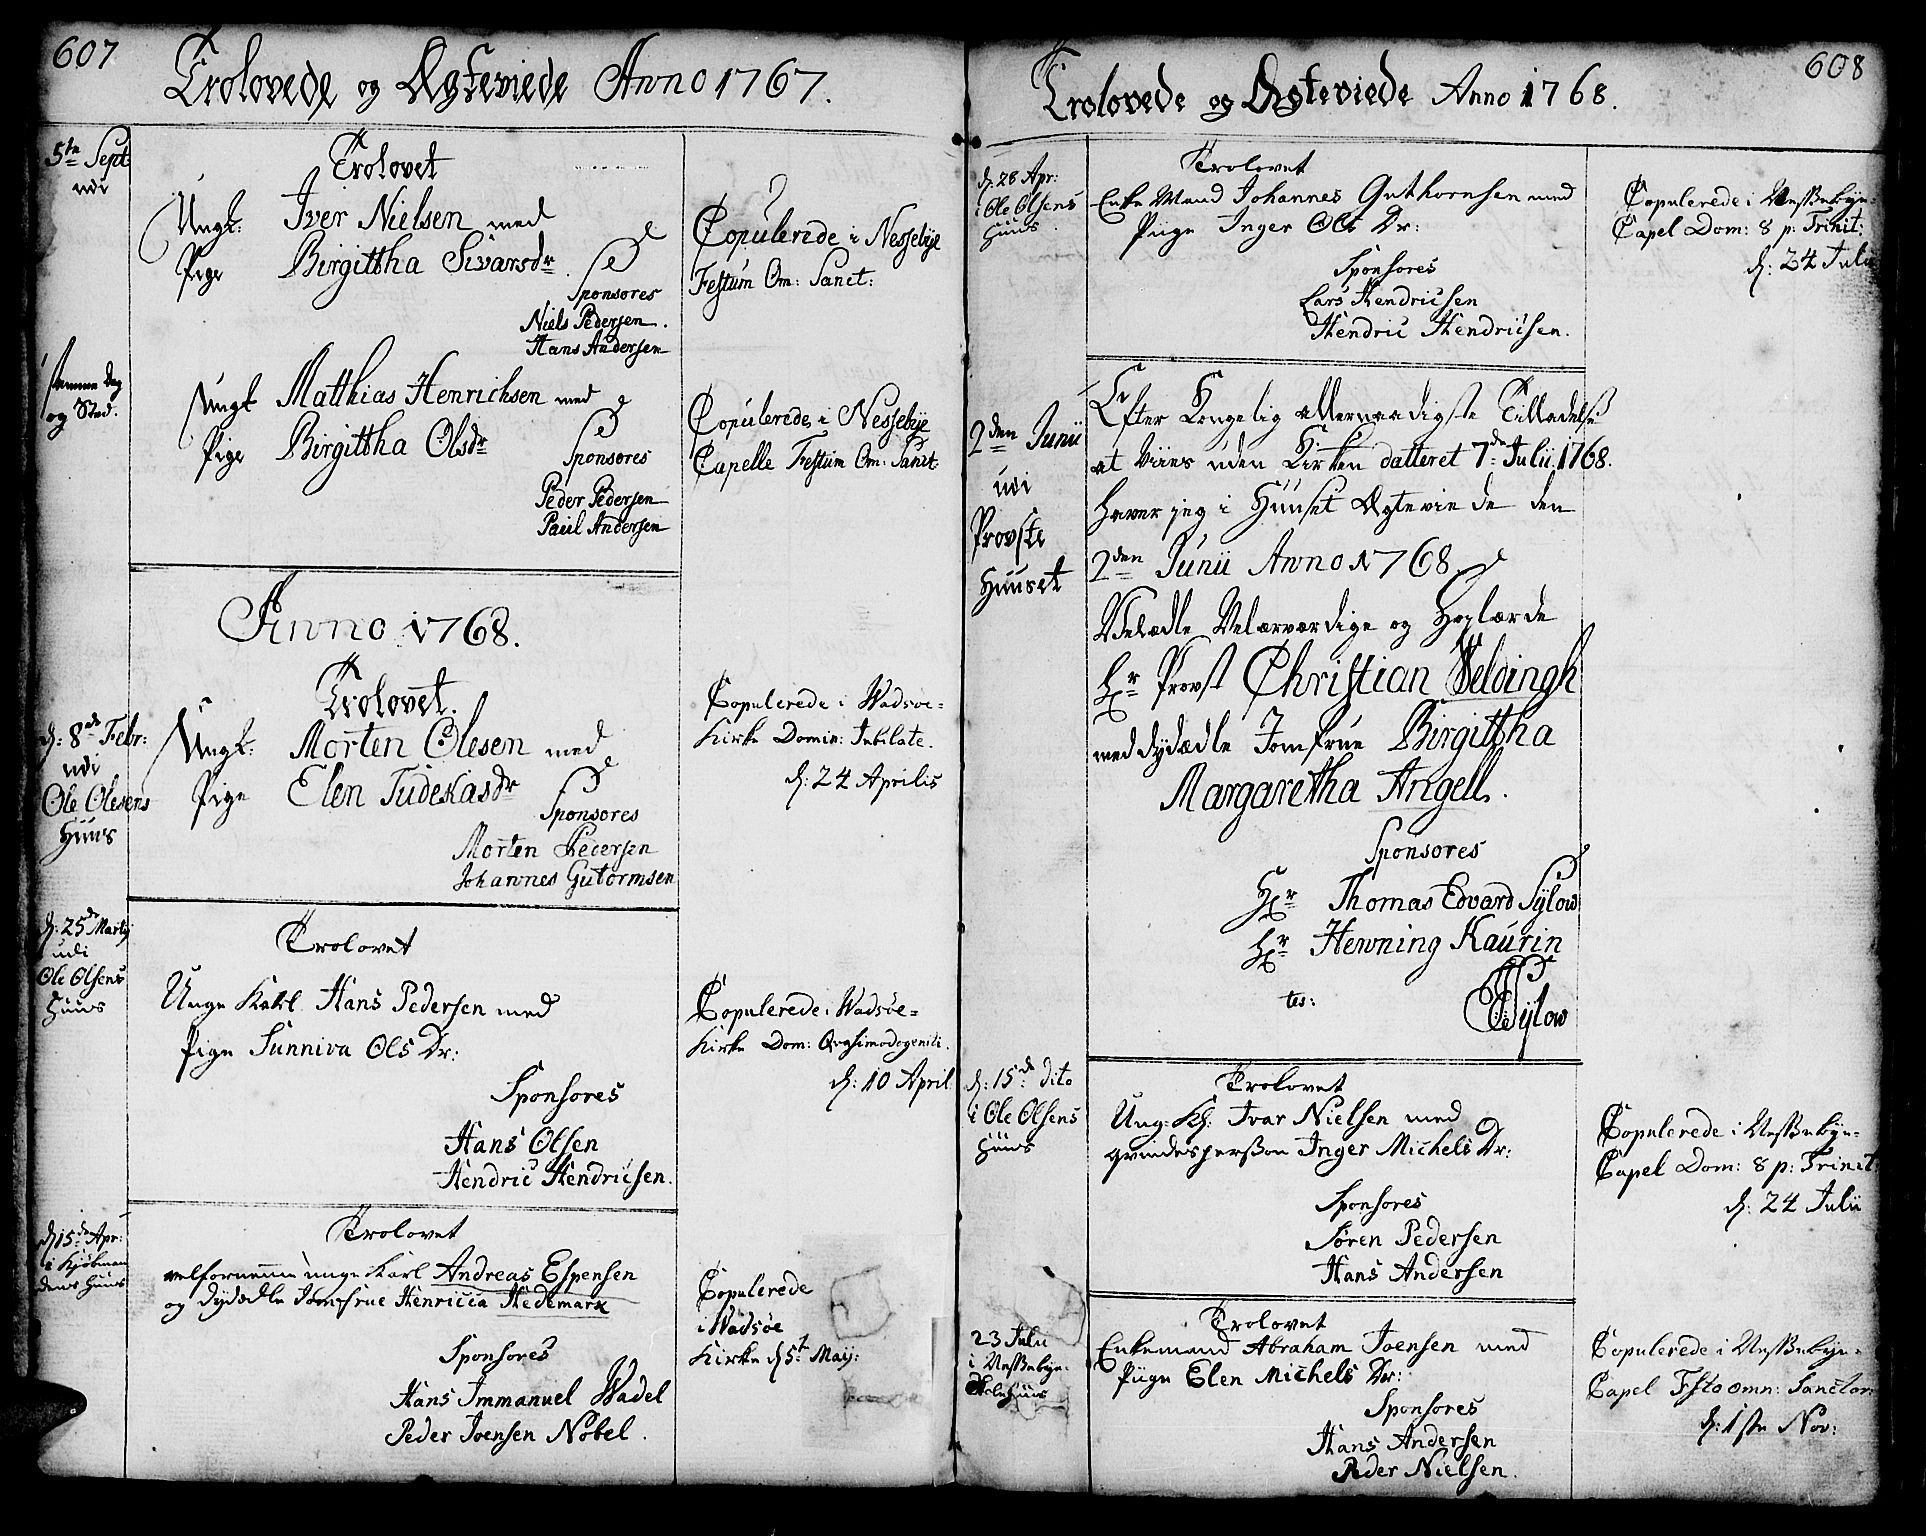 607
Trolovede og Ægteviede Anno 1767.
5te Sept:
udi
Trolovet
Ungk: Iver Nielsen med
Pige Birgittha Sivarsdr.
Sponsores
Niels Pedersen.
Hans Andersen
Copulerede i Nessebÿe
Festum Om: Sanct:
samme dag
og Sted.
Ungk Matthias Henrichsen med
Pige Birgittha Olsdr
Sponsores
Peder Pedersen
Paul Andersen
Copulerede i Nessebÿe
Capelle Festum Om: Sanct:
Anno 1768.
Trolovet.
d: 8de Febr:
udi
Ole Olesens
Huus
Ungk: Morten Olesen med
Pige Elen Tudeskasdr
Sponsores
Morten Pedersen
Johannes Gutormsen
Copulerede i Wadsøe-
Kirke Domin: Jubilate.
d: 24 Aprilis
d: 25de Martij
udi
Ole Olsens
Huus
Trolovet
Unge Karl Hans Pedersen med
Pige Sunniva Ols Dr:
Sponsores
Hans Olsen
Hendric Hendricsen.
Copulerede i Wadsøe=
Kirke Dom: Qvasimodogeniti.
d: 10 April
d 15de Apr:
i Kjøbman
dens Huus
Trolovet
velfornemme unge Karl Andreas Espensen
og dydædle Jomfrue Henricia Hedemark
Sponsores
Hans Immanuel Wadel
Peder Joensen Nobel.
Copulerede
i Wadsøe
Kirke d 5t Maij:
608
Trolovede og Ægteviede Anno 1768.
d: 28 Apr:
i Ole Olsens
Huus.
Trolovet
Enke Mand Johannes Guthornsen med
Piige Inger Ols Dr:
Sponsores
Lars Hendricsen
Hendric Hendricsen.
Copulerede i Nessebye-
Capel Dom: 8 p: Trinit:
d: 24 Julii
2den Junii
udi
Provste
Huuset
Efter Kongelig allernaadigste Tilladelse
at Viies uden Kirken datteret 7de Julii 1768.
haver jeg i Huuset Ægteviede den
2den Junii Anno 1768
Velædle Velærværdige og Høylærde
Hr Provst Christian Weldingh
med dydædle Jomfrue Birgittha
Margaretha Angell.
Sponsores
Hr Thomas Edvard Sylow
Hr Henning Kaurin
tes: Sylow
d: 15de dito
i Ole Olsens
Huus
Trolovet
Ung: K: Ivar Nielsen med
qvindesperson Inger Michels Dr:
Sponsores
Søren Pedersen
Hans Andersen
Copulerede i Nessebye-
Capel Dom: 8 p: Trinit:
d: 24 Julii
23 Julii
i Nessebye-
Skolehuus
Trolovet
Enkemand Abraham Joensen med
Piige Elen Michels Dr:
Sponsores
Hans Andersen
Peder Nielsen.
Copulerede i Nessebye-
Capel Fsto omn: Sanctor:
d: 1ste Nov: